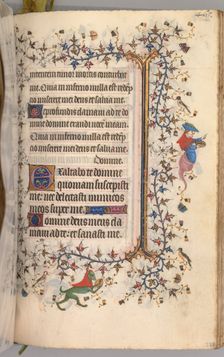 me. Quia in inferno nulla est redēp
cio miserere mei deus et salua me.
De profundis clamaui ad te do
mine domine exaudi uocem meam.
Quia in inferno nulla est redēp
cio miserere mei deus et salua me.
Exaltabo te domine
quoniam suscepisti
me: nec delectasti inimicos
meos super me.
Domine deus meus cla
maui ad te: et sanasti me.